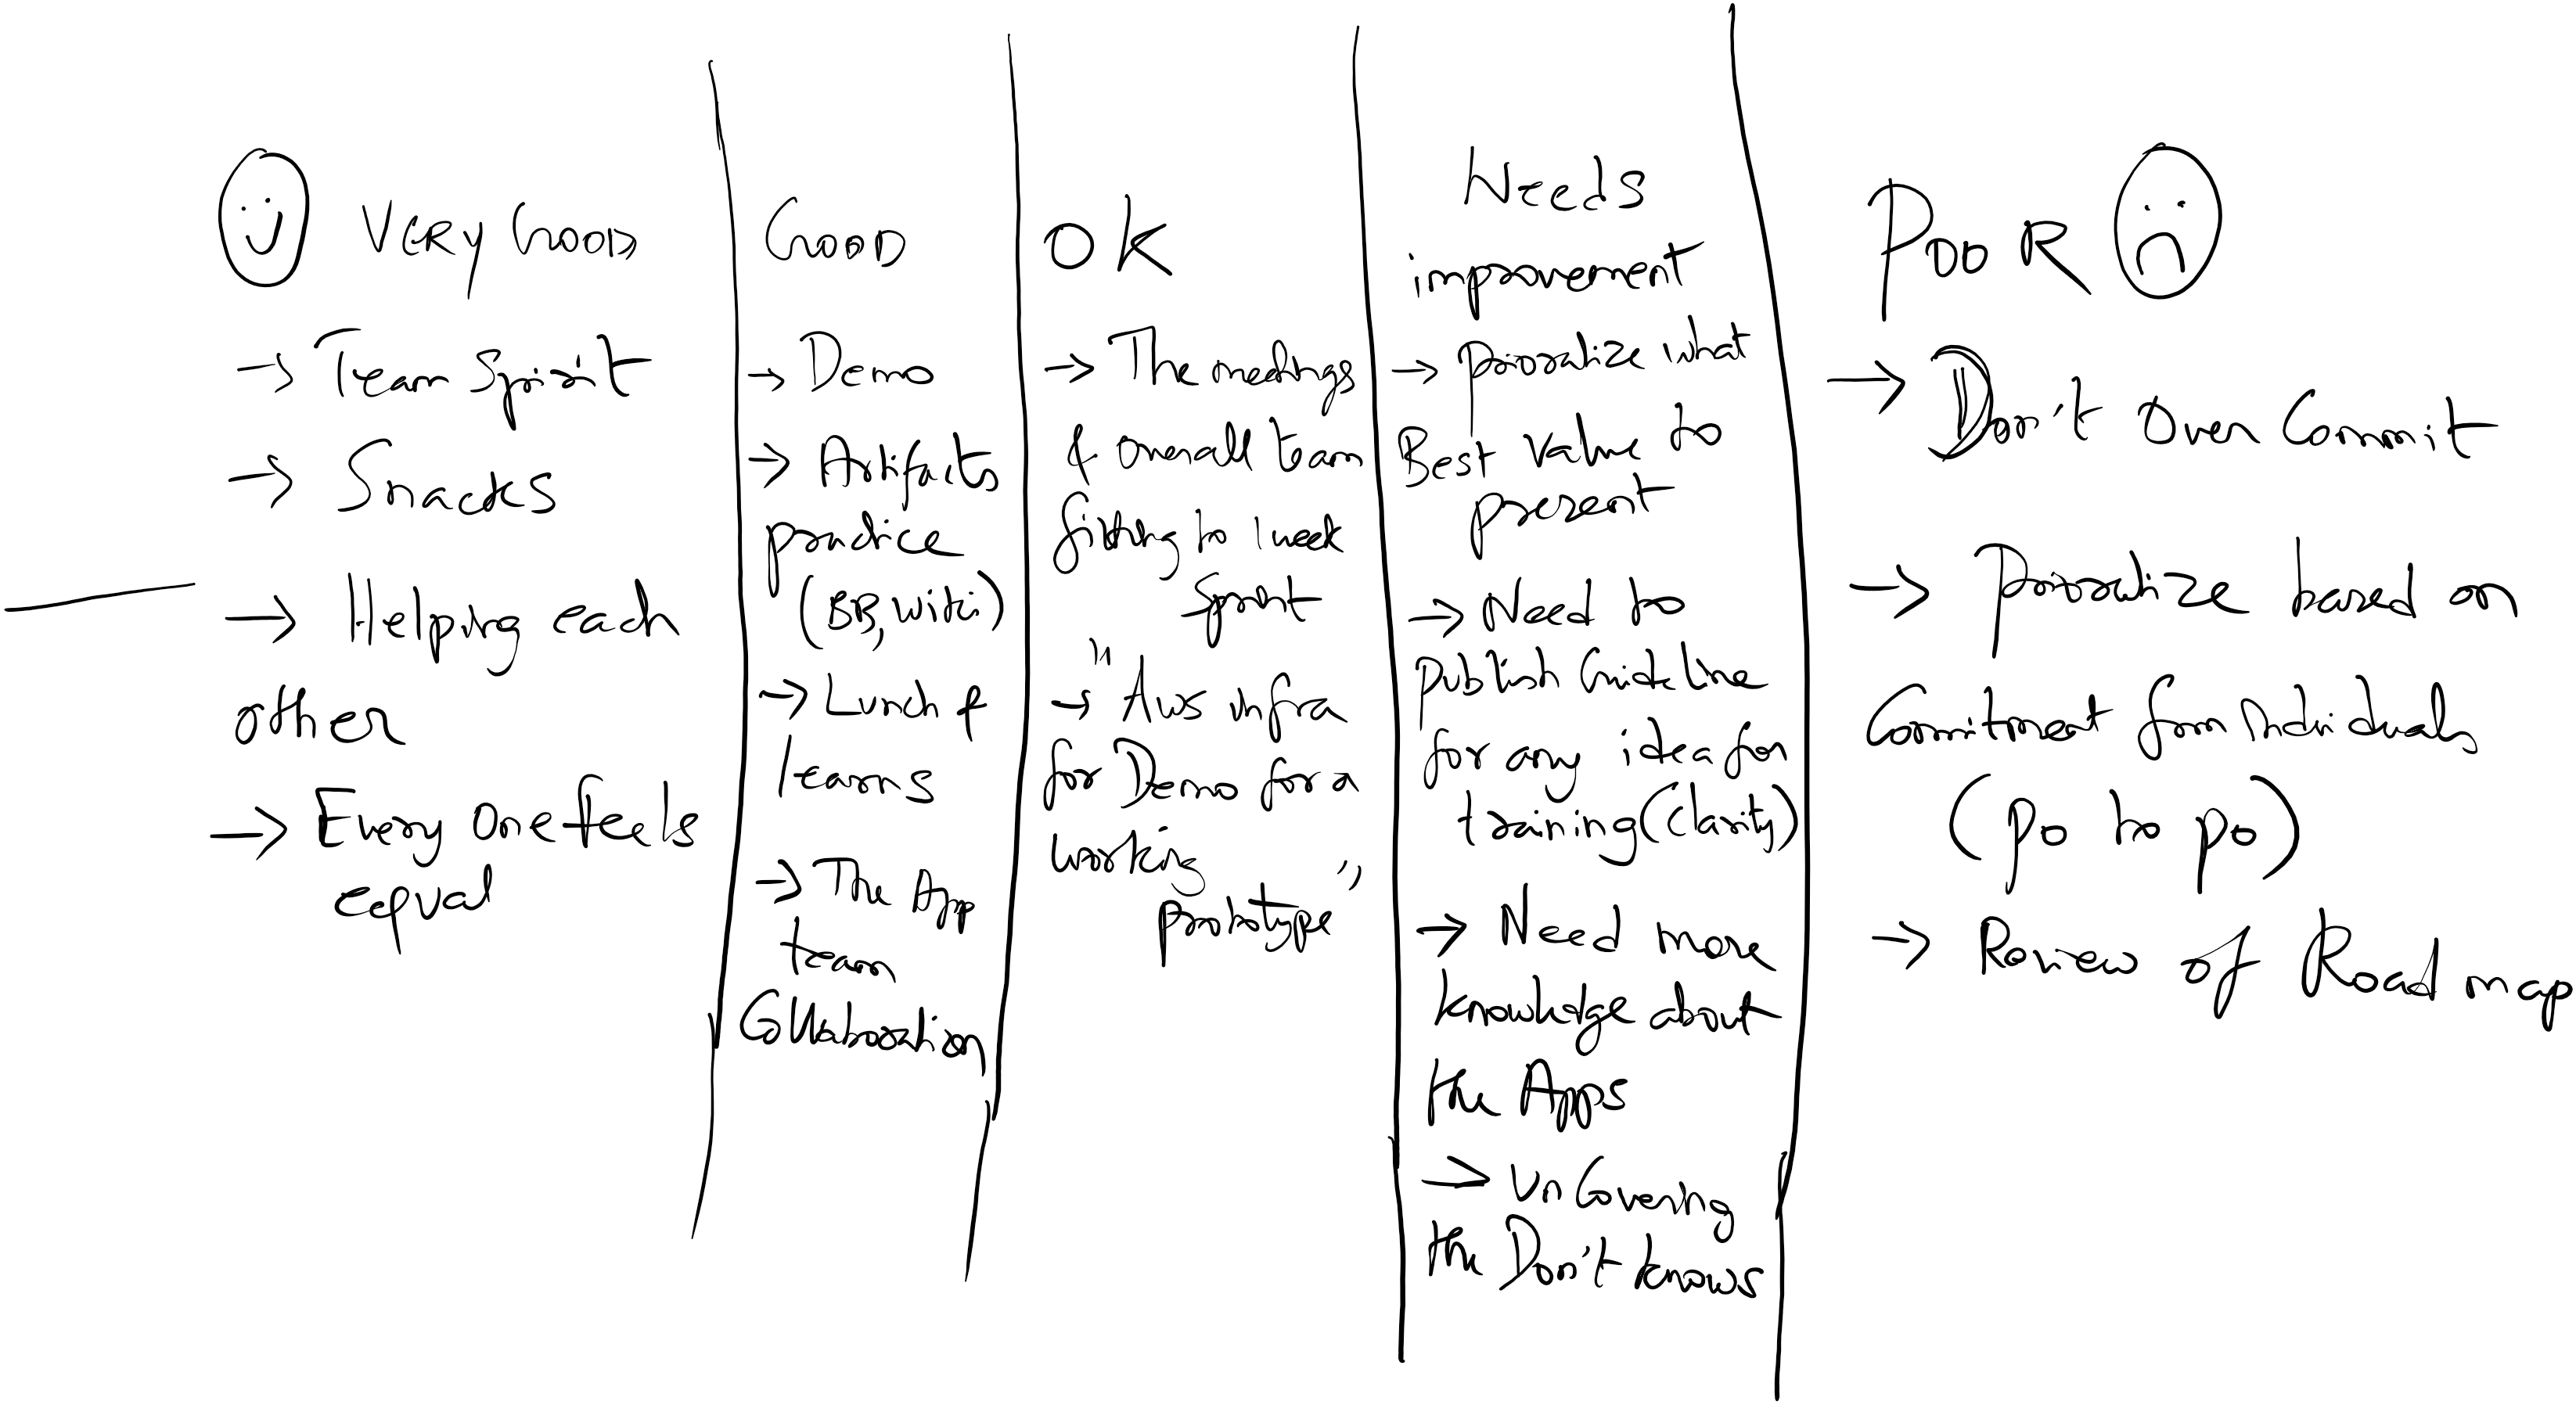 VERY GOOD
→ Team Spirit
→ Snacks
→ Helping each
other
→ Every One feels
equal
GOOD
→ Demo
→ Artifacts
practice
(BB, wiki)
→ Lunch &
learns
→ The App
team
Collaboration
OK
→ The meetings
& Overall team
fitting to 1 week
Sprint
→ "Aws infra
for Demo for a
working
prototype"
Needs
improvement
→ prioratize what
Best Value to
present
→ Need to
Publish Guideline
for any idea for
training (Clarity)
→ Need more
knowledge about
the Apps
→ UnCovering
the Don't knows
POOR
→ Don't Over Commit
→ Prioratize based on
Commitment from Individuals
(po to po)
→ Review of Road map